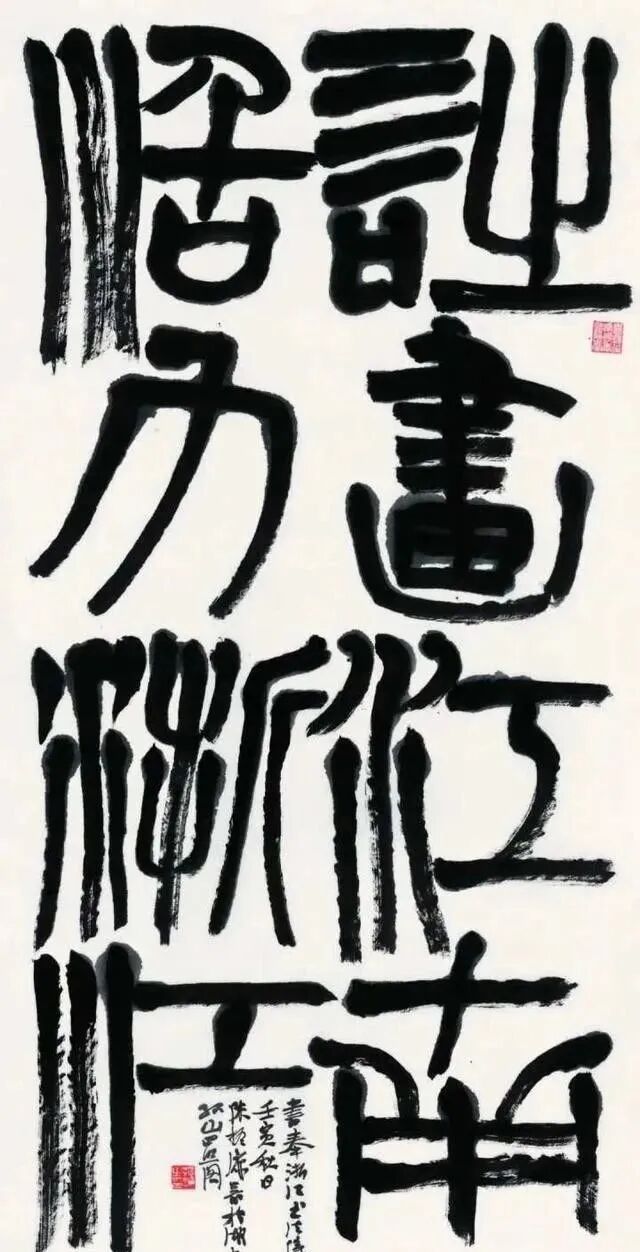 詩畫江南
活力浙江
書奉浙江書法院
壬寅秋日
陳振濂於湖
孤山閣